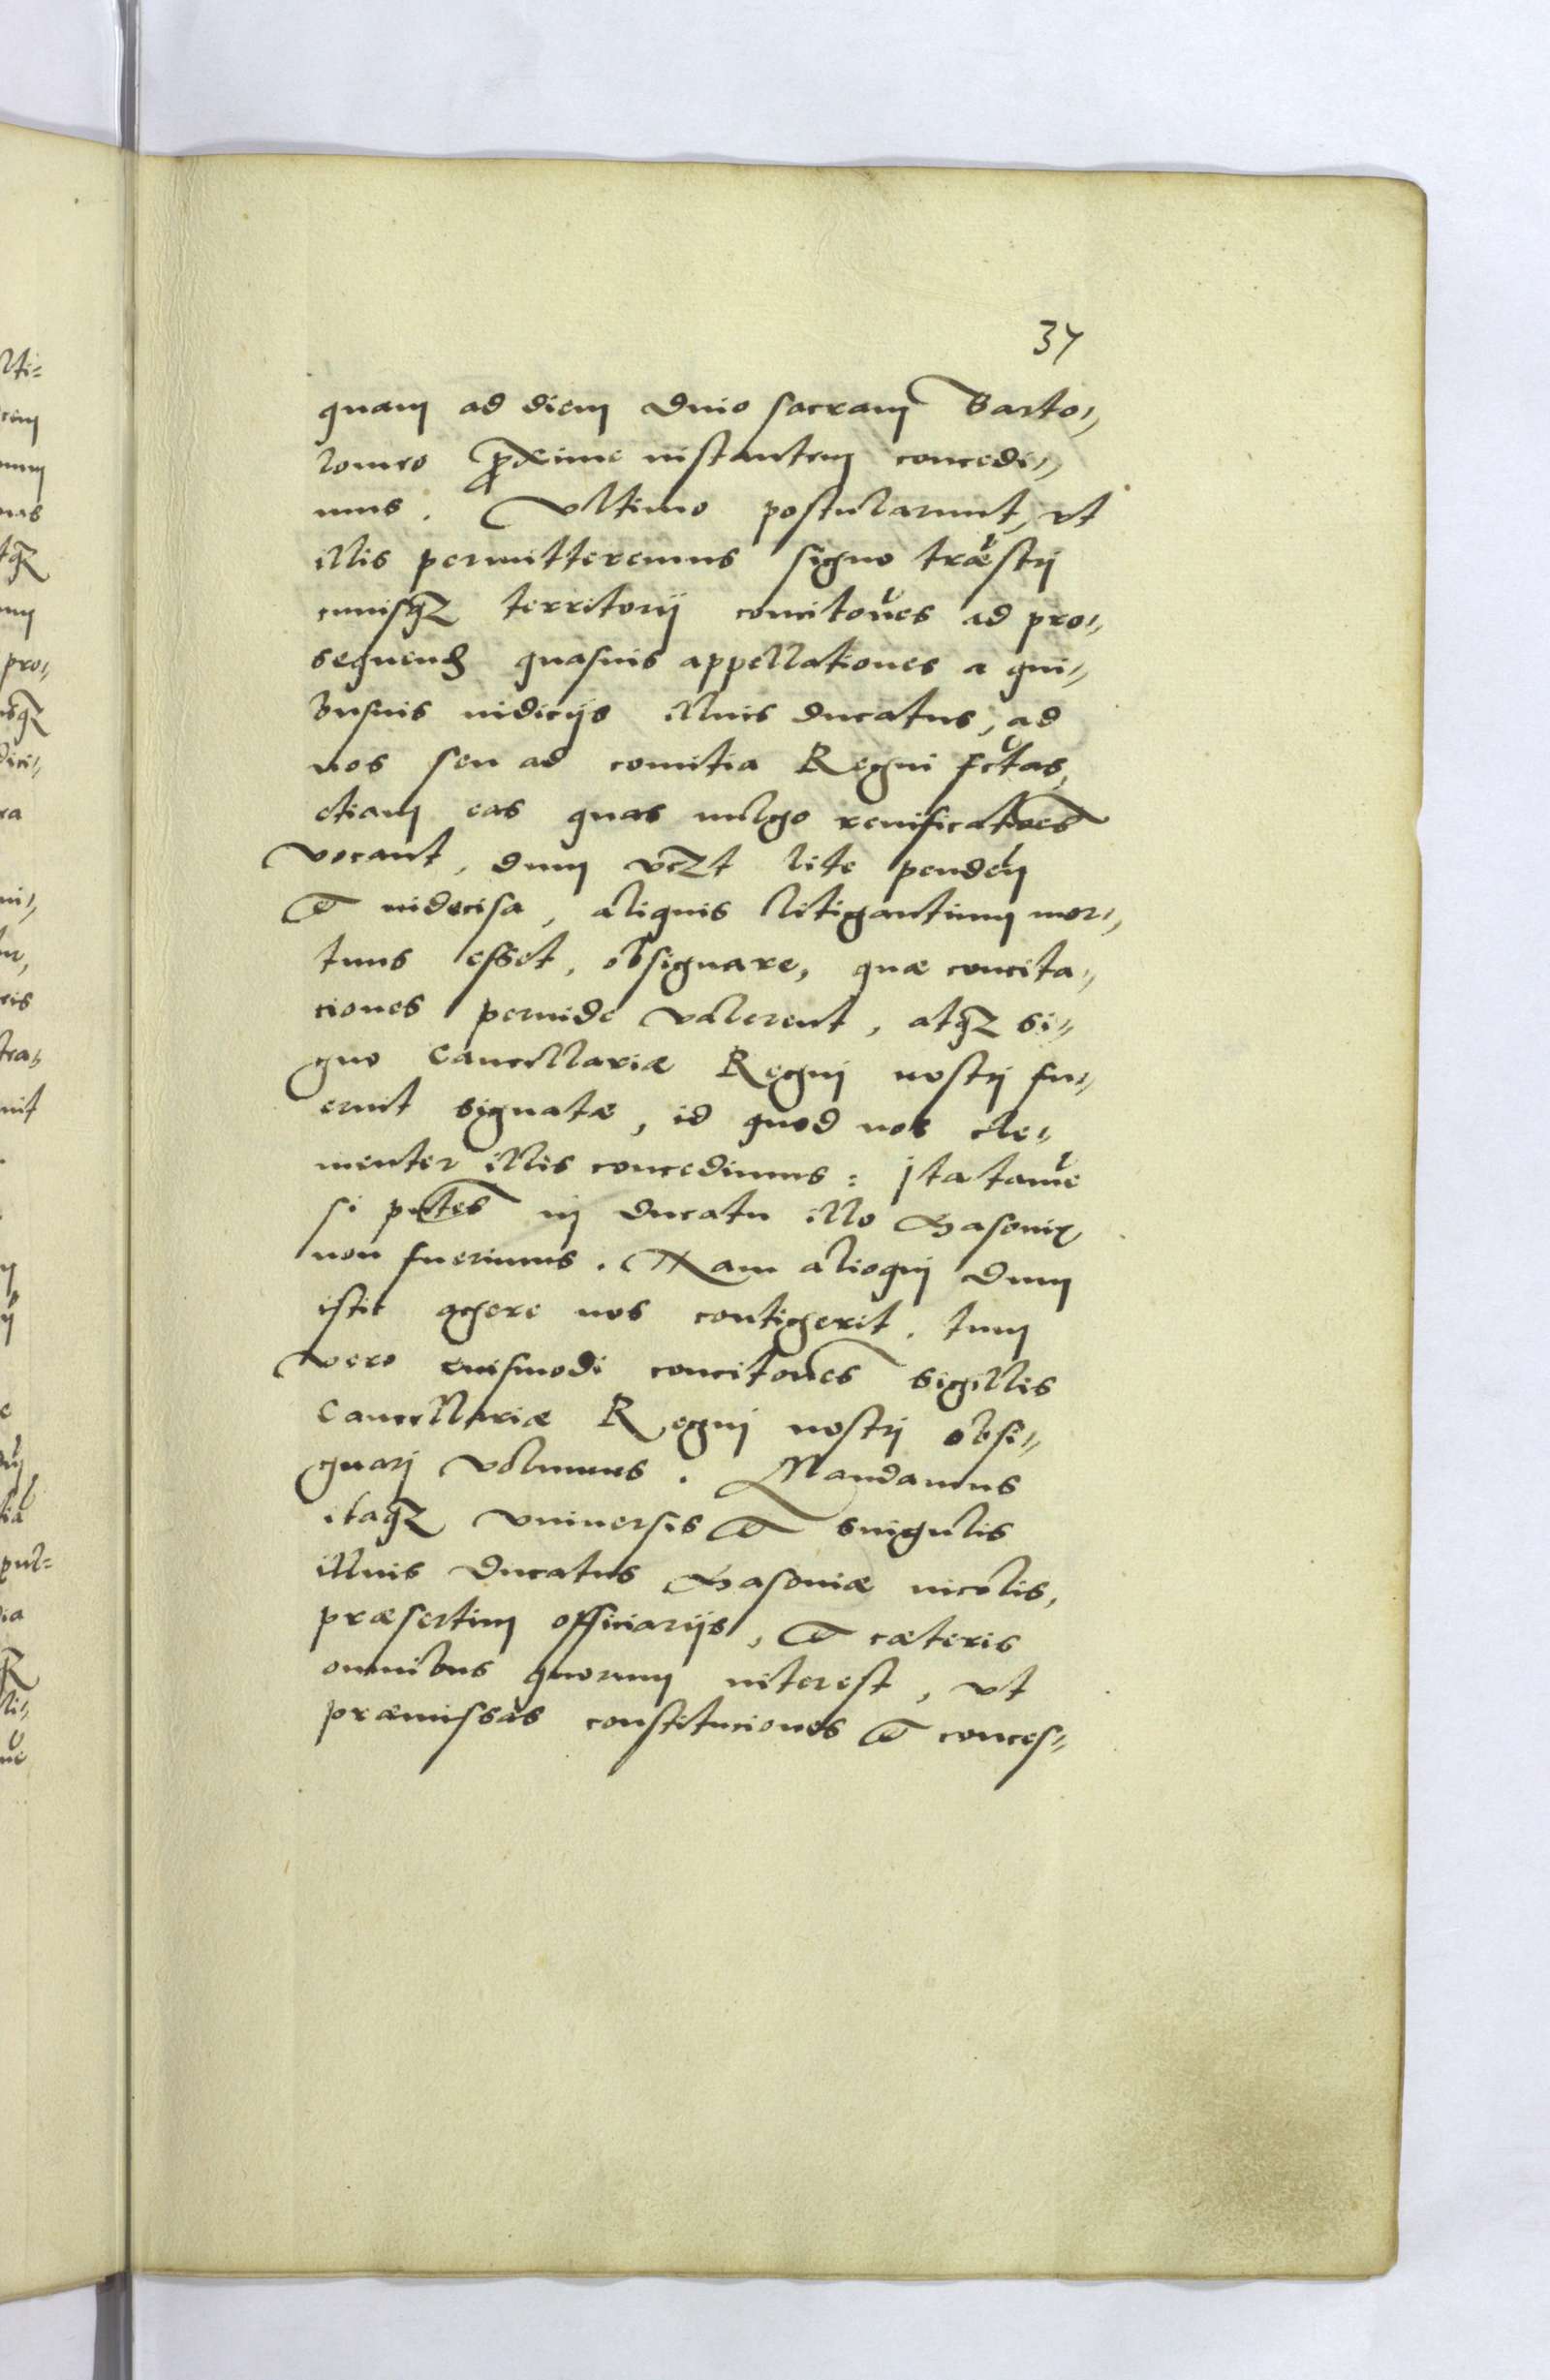 37
quam ad diem Diuo sacram Barto-
lomeo proxime instantem concedi-
mus. Vltimo postularunt, vt
illis permitteremus signo trrestrj
cuiusqz territorij concitones ad pro-
sequend quasuis appellationes a qui-
busuis iudicijs illius Ducatus, ad
nos seu ad comitia Regni fctas,
etiam eas quas uulgo reuificatioes
vocant, dum vczt lite penden
et indecisa, aliquis litigantium mor-
tuus esset, obsignare, quæ concita-
ciones perinde valerent, atqz si
gno Cancellariæ Regnj nostrj fu-
erint signatæ, id quod nos cle-
menter illis concedimus: Ita tame
si pntes in Ducatu illo Masoniæ
non fuerimus. Nam alioqui dum
istic agere nos contigerit, tum
vero euismodi concitones sigillis
Cancellariæ Regnj nostrj obsi-
gnarj volumus. Mandamus
itaqz vniuersis et singulis
illius Ducatus Masoniæ incolis,
præsertim officiarijs, et cæteris
omnibus quorum interest, vt
præmissas constituciones et conces-